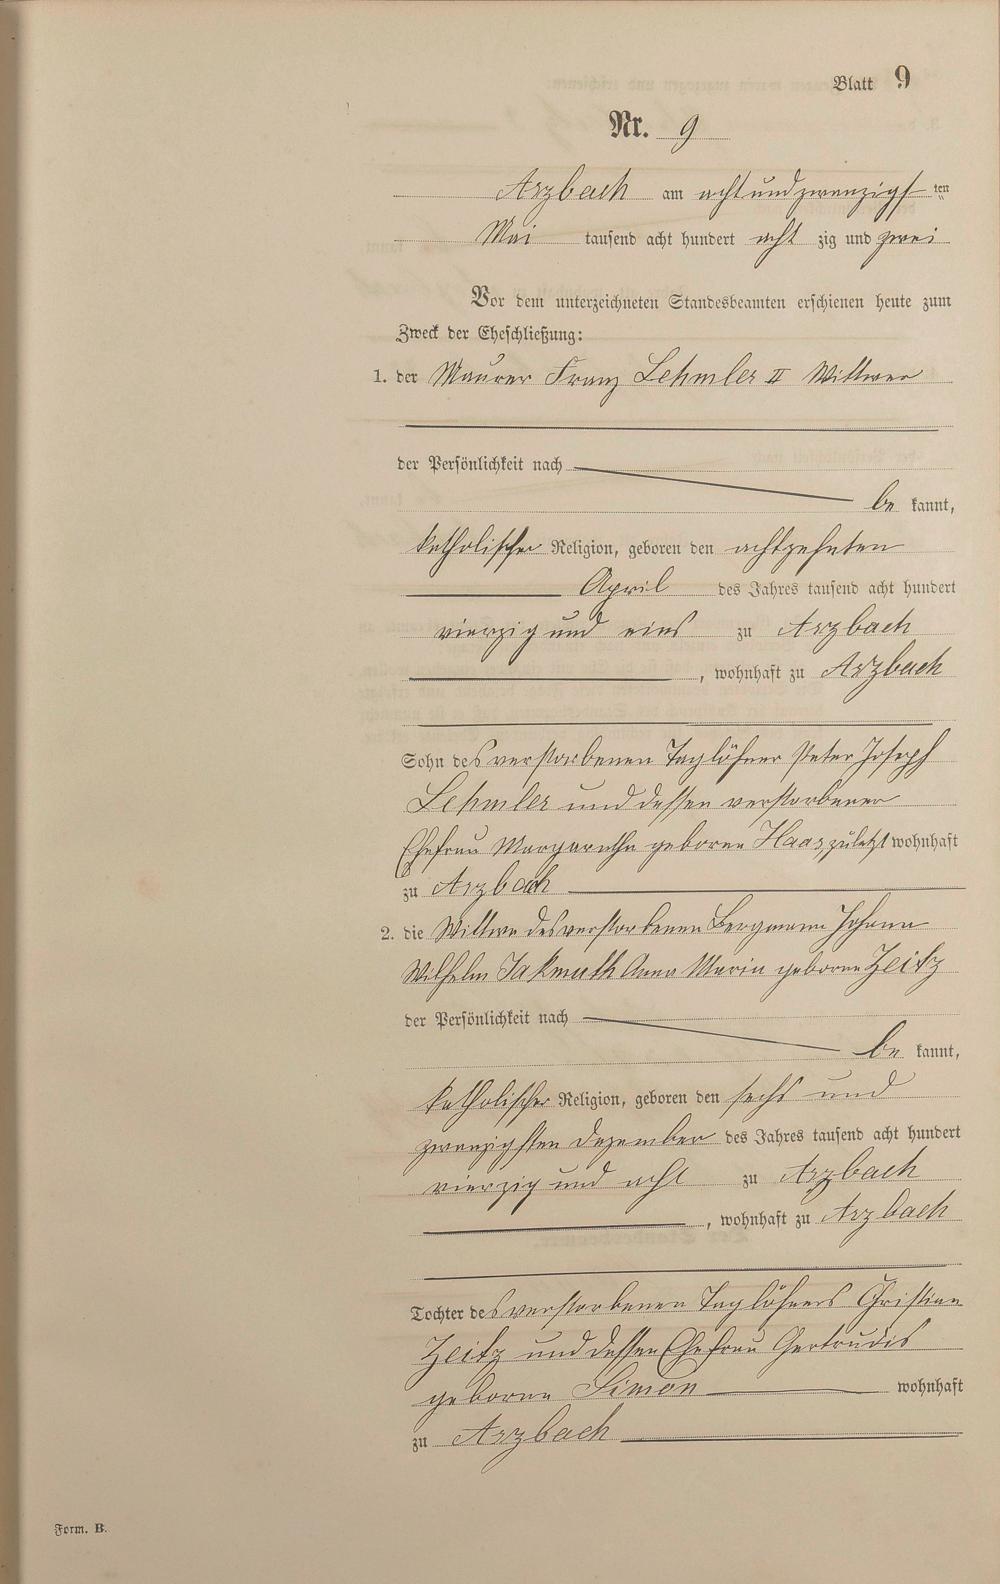 Blatt 9
Nr. 9
Arzbach am acht und zwanzigsten
Mai tausend acht hundert acht zig und zwei
Vor dem unterzeichneten Standesbeamten erschienen heute zum
Zweck der Eheschließung:
1. der Maurer Franz Lehmler II Wittwer
der Persönlichkeit nach
be kannt,
katholischer Religion, geboren den achtzehnten
April des Jahres tausend acht hundert
vierzig und eins zu Arzbach
, wohnhaft zu Arzbach
Sohn des verstorbenen Taglöhner Peter Joseph
Lehmler und dessen verstorbener
Ehefrau Margaretha geborne Haas, zuletzt wohnhaft
zu Arzbach
2. die Wittwe des verstorbenen Bergmann Johann
Wilhelm Jakmuth Anna Maria geborne Zeitz
der Persönlichkeit nach
be kannt,
katholischer Religion, geboren den sechs und
zwanzigsten Dezember des Jahres tausend acht hundert
vierzig und acht zu Arzbach
, wohnhaft zu Arzbach
Tochter des verstorbenen Taglöhners Christian
Zeitz und dessen Ehefrau Gertrudis
geborne Simon wohnhaft
zu Arzbach
Form. B.